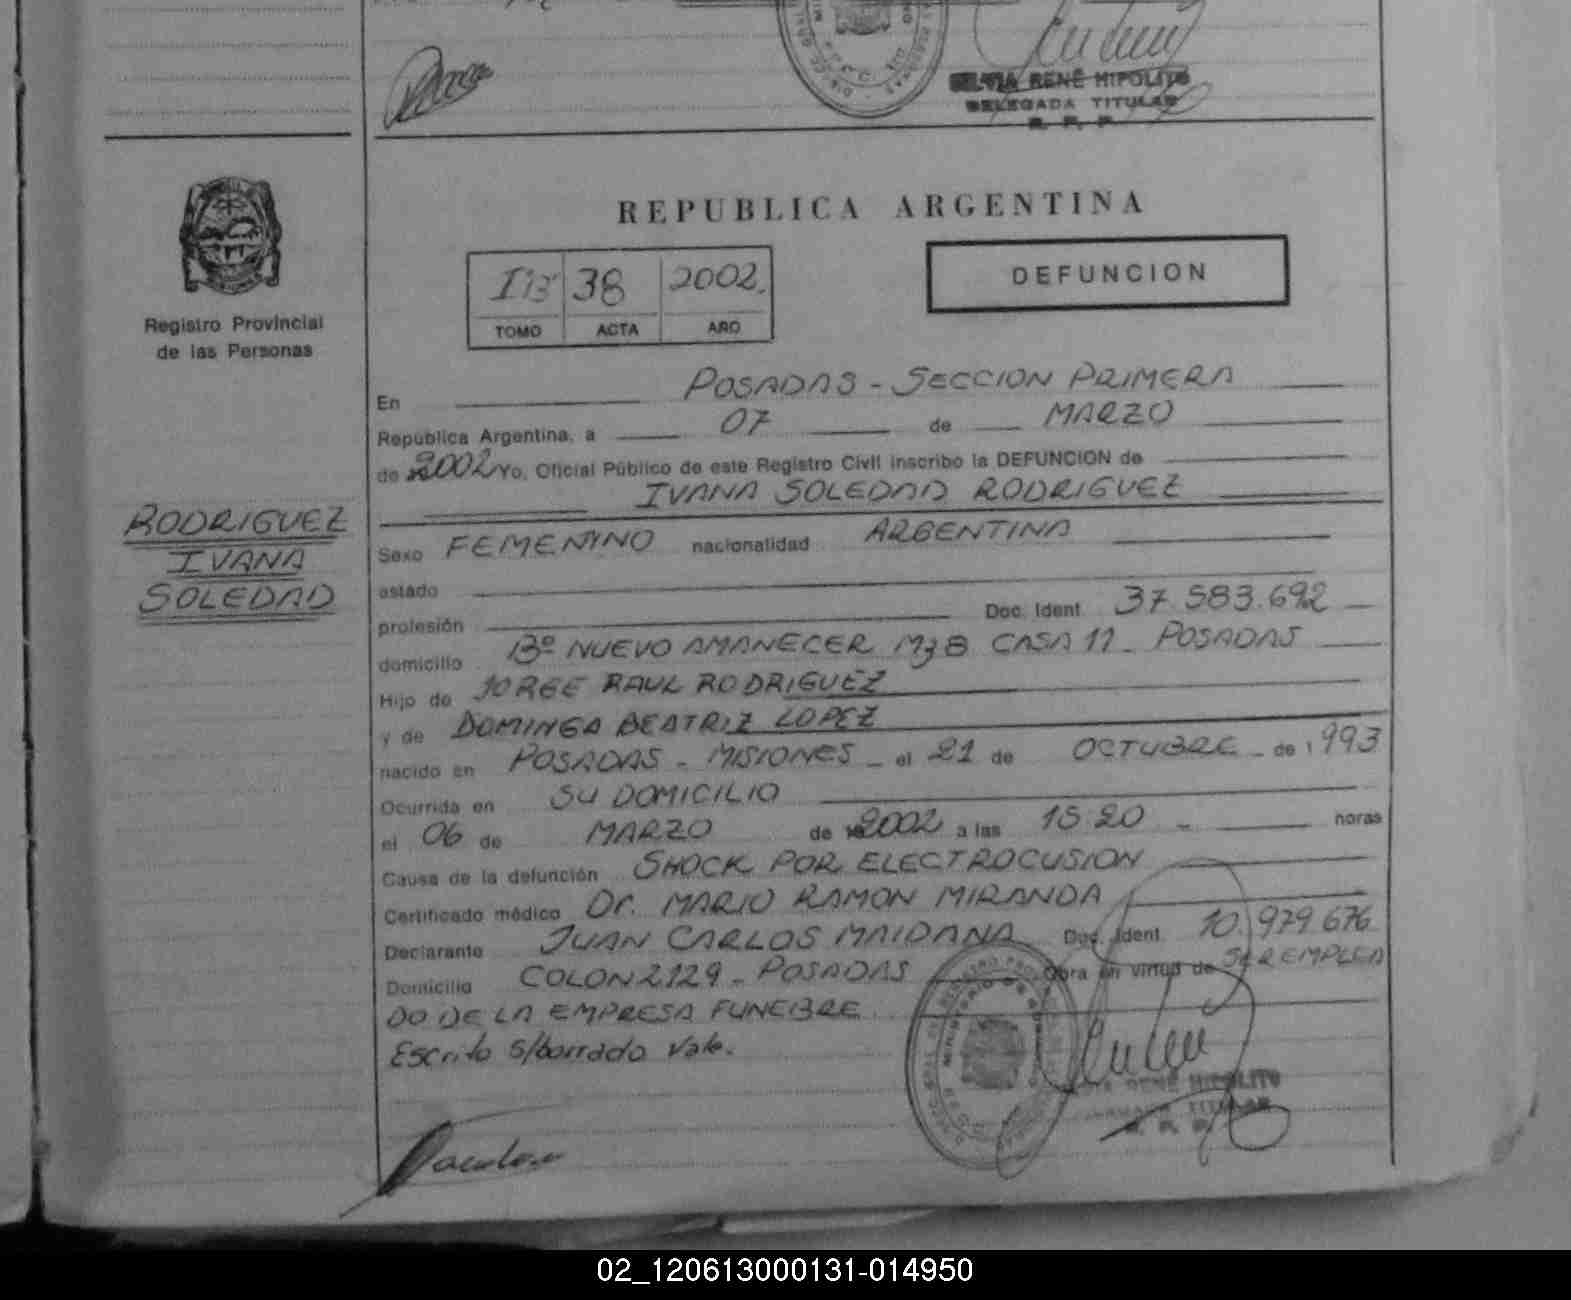 SILVIA RENÉ HIPOLITO
DELEGADA TITULAR
R. P. P.
REPUBLICA ARGENTINA
38 2002.
TOMO ACTA AÑO
DEFUNCION
Registro Provincial
de las Personas
En POSADAS - SECCION PRIMERA
República Argentina, a 07 de MARZO
de 2002 Yo, Oficial Público de este Registro Civil inscribo la DEFUNCION de
IVANA SOLEDAD RODRIGUEZ
RODRIGUEZ
IVANA
SOLEDAD
Sexo FEMENINO nacionalidad ARGENTINA
estado
profesión Doc. Ident. 37.583.692
domicilio Bº NUEVO AMANECER Mz 8 CASA 11 - POSADAS
Hijo de JORGE RAUL RODRIGUEZ
y de DOMINGA BEATRIZ LOPEZ
nacido en POSADAS - MISIONES - el 21 de OCTUBRE - de 1993
Ocurrida en SU DOMICILIO
el 06 de MARZO de 2002 a las 15.20 - horas
Causa de la defunción SHOCK POR ELECTROCUSION
Certificado médico Dr. MARIO RAMON MIRANDA
Declarante JUAN CARLOS MAIDANA Doc. Ident. 10.979.676
Domicilio COLON 2129 - POSADAS Obra en virtud de SER EMPLEA
DO DE LA EMPRESA FUNEBRE
Escrito s/borrado Vale.
RENÉ HIPOLITO
TITULAR
R. P. P.
02_120613000131-014950